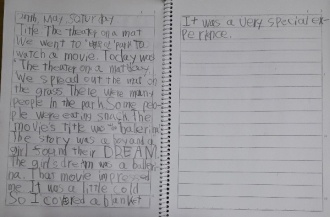 May, Saturday
Title The theater on a mat
We went to park to
watch a movie. Today was
"The theater on a mat" day
We spread out the mat on
the grass There were many
people in the park Some peo-
ple were eating snack. The
movie's title was "ballerina"
The story was a boy and a
girl found their DREAM.
The girl's dream was a baller-
ina. That movie impressed
me It was a little cold
So I covered a blanket
It was a very special ex-
perience.